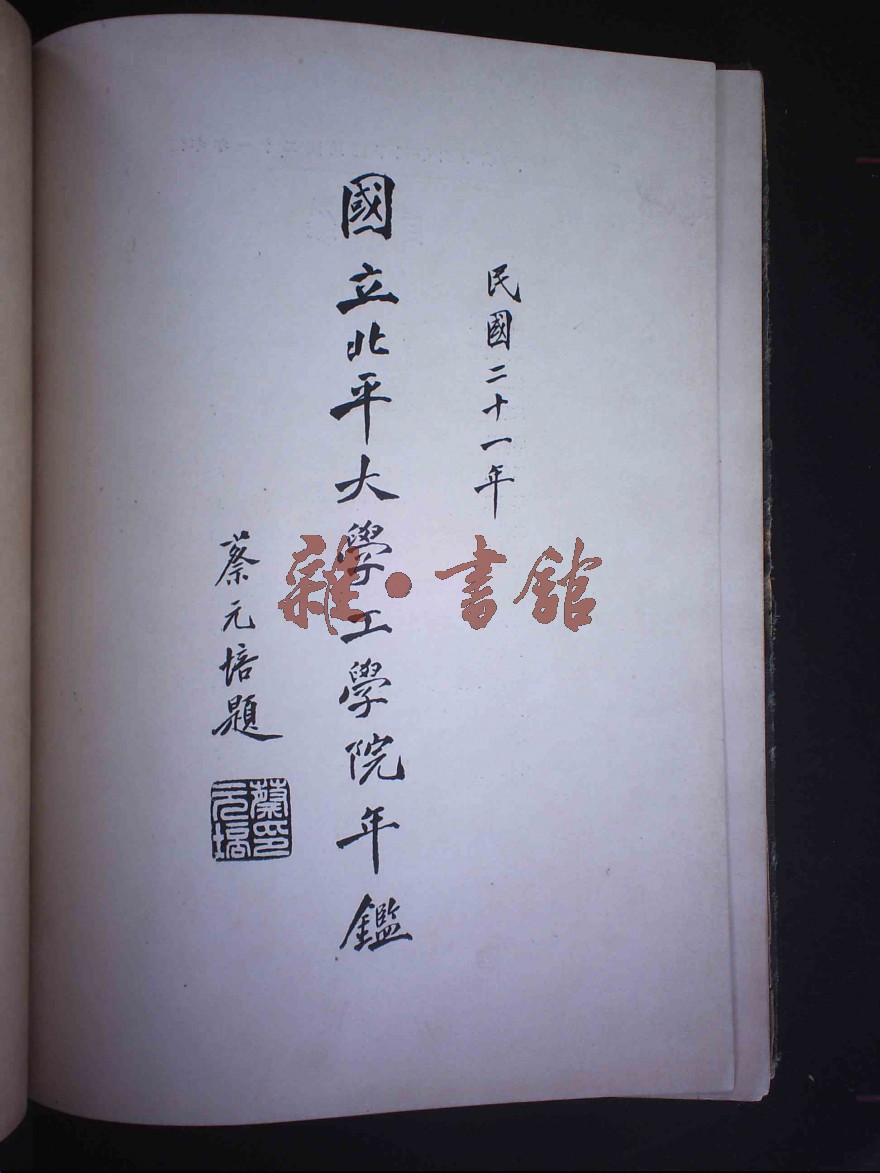 民國二十一年
國立北平大學工學院年鑑
蔡元培題
蔡元培印
雜·書館